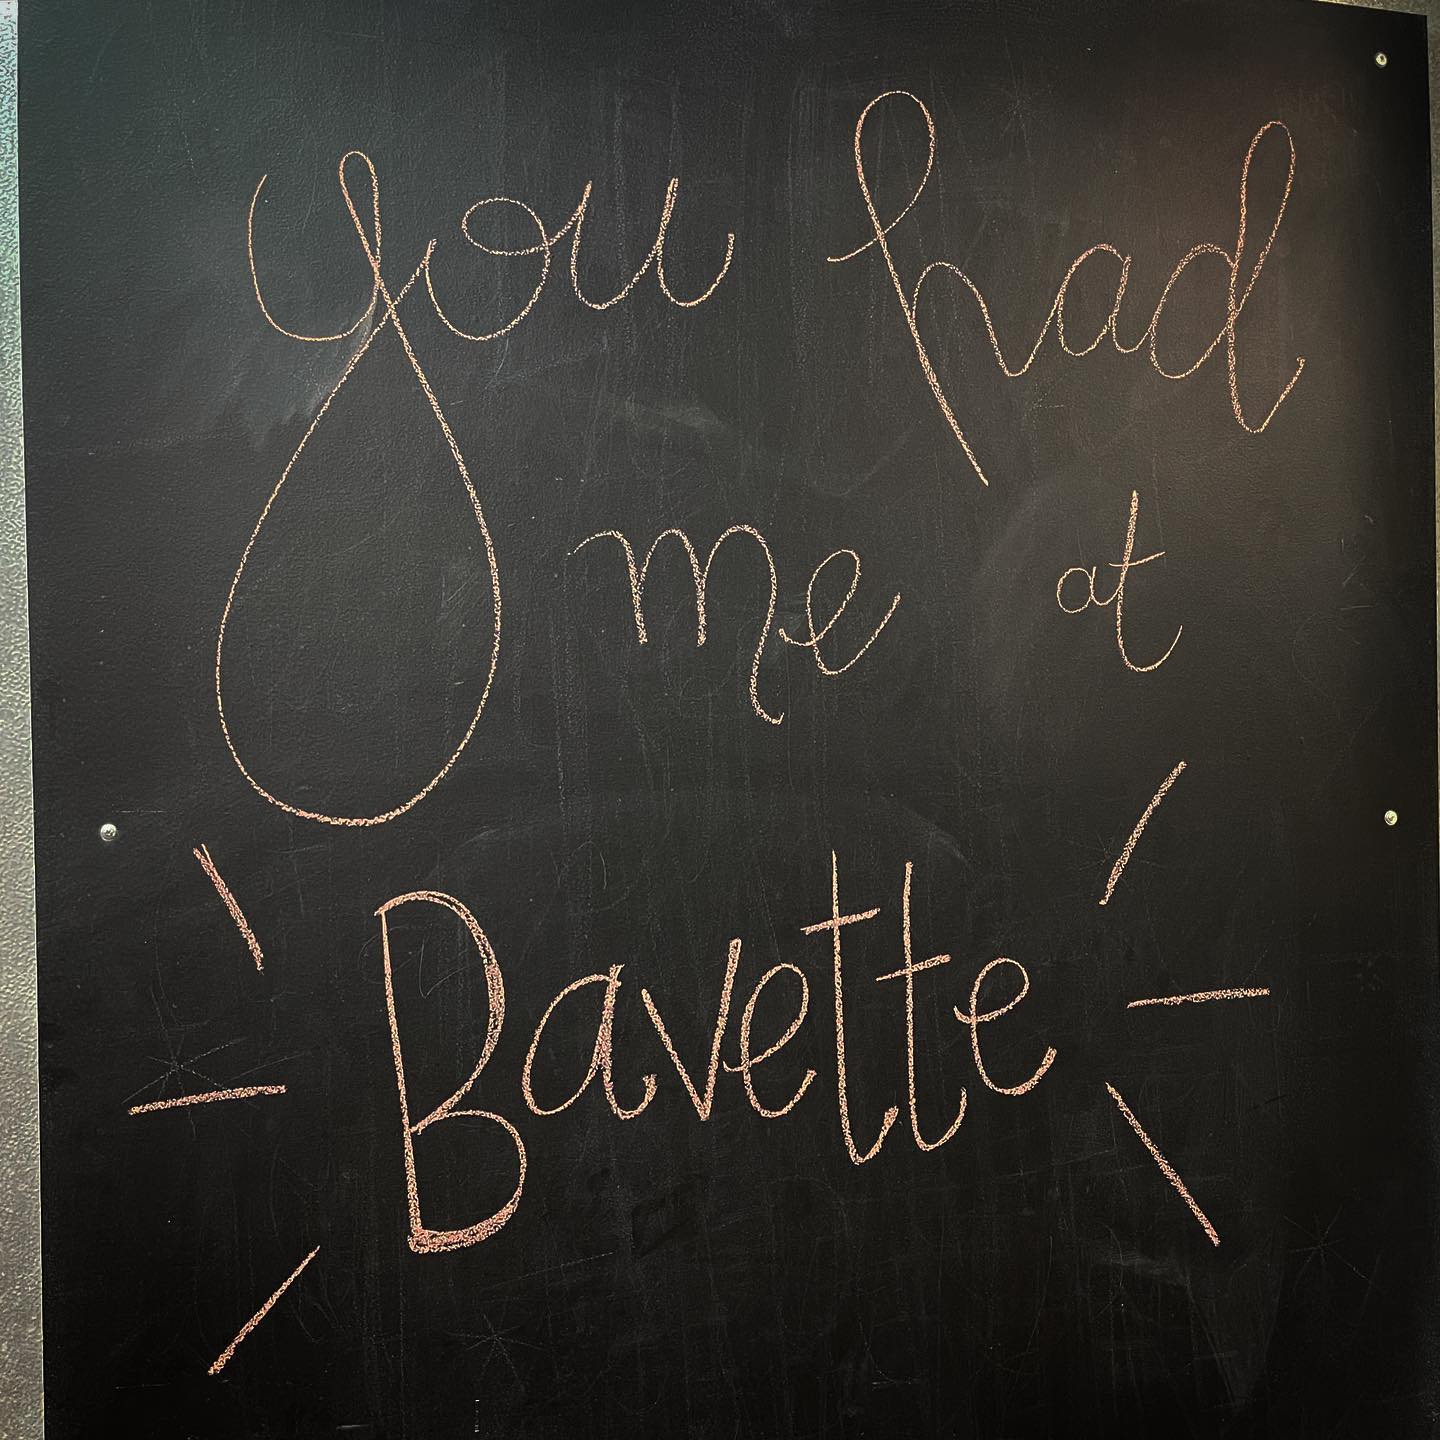 you had
me at
Bavette